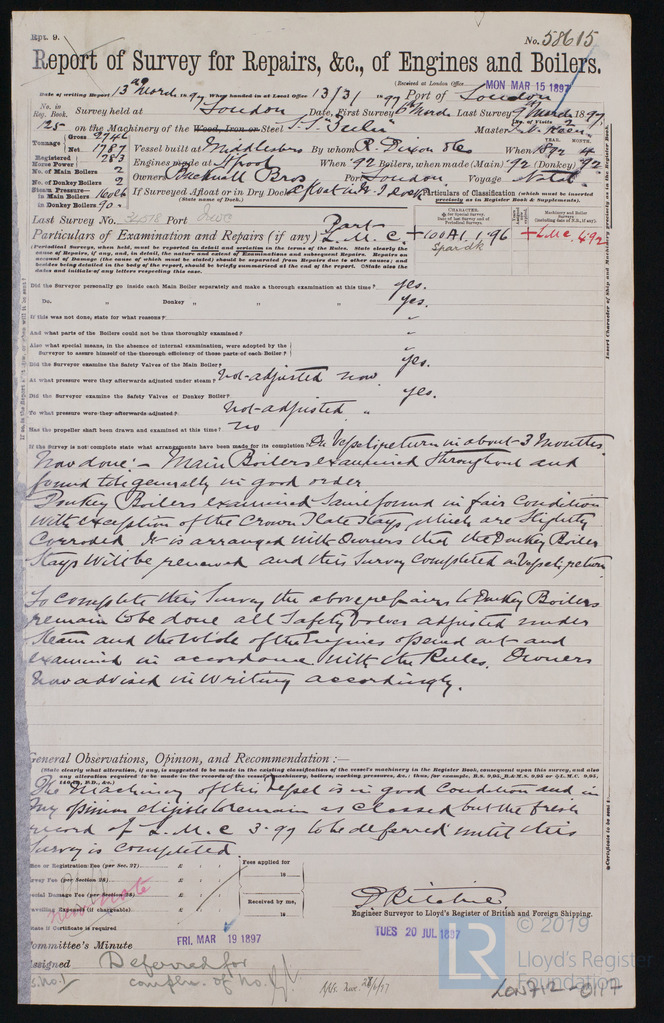 Rpt. 9.
No. 58615
Report of Survey for Repairs, &c., of Engines and Boilers.
(Received at London Office MON MAR 15 1897
Date of writing Report 13th March 1897 When handed in at Local Office 13/3/1897 Port of London
No. in Reg. Book. Survey held at London Date, First Survey March Last Survey 9 March 1897
125 on the Machinery of the Wood, Iron or Steel S.S.
Master
Tonnage Gross 2746 Net 1787
Vessel built at Middlesbro By whom R. Dixon & Co When 1892
Registered Horse Power 283
Engines made at When '92 Boilers, when made (Main) '92 (Donkey) '92
No. of Main Boilers 2
No. of Donkey Boilers 2
Owners Bucknall Bros Port London Voyage Natal
Steam Pressure in Main Boilers 160 lb
in Donkey Boilers 90
If Surveyed Afloat or in Dry Dock Afloat
(State name of Dock.)
Particulars of Classification (which must be inserted precisely as in Register Book & Supplements).
Last Survey No. Port
Particulars of Examination and Repairs (if any) Part L.M.C.
+100A1. 1.96
+L.M.C. 4.92
Did the Surveyor personally go inside each Main Boiler separately and make a thorough examination at this time? yes.
Do. Donkey " " " yes.
If this was not done, state for what reasons? "
And what parts of the Boilers could not be thoroughly examined? "
Also what special means, in the absence of internal examination, were adopted by the
Surveyor to assure himself of the thorough efficiency of those parts of each Boiler? "
Did the Surveyor examine the Safety Valves of the Main Boiler? yes.
At what pressure were they afterwards adjusted under steam? Not adjusted now
Did the Surveyor examine the Safety Valves of Donkey Boiler? yes.
To what pressure were they afterwards adjusted? Not adjusted "
Has the propeller shaft been drawn and examined at this time? no
If the Survey is not complete state what arrangements have been made for its completion? On Vessel's return in about 3 months
Now done:- Main Boilers examined throughout and
found to be generally in good order
Donkey Boilers examined same found in fair condition
with exception of the Crown Plate Stays, which are slightly
corroded It is arranged with Owners that the Donkey Boiler
stays will be renewed and this Survey completed on Vessel's return
To complete this Survey the above repairs to Donkey Boilers
remain to be done all Safety valves adjusted under
steam and the whole of the engines opened out and
examined in accordance with the Rules. Owners
now advised in writing accordingly.
General Observations, Opinion, and Recommendation :—
(State clearly what alteration, if any, is suggested to be made in the existing classification of the vessel's machinery in the Register Book, consequent upon this survey, and also
any alteration required to be made in the records of the vessel's machinery, boilers, working pressures, &c.; thus, for example, B.S. 9.95, B.&M.S. 9.95 or L.M.C. 9.95,
The Machinery of this Vessel is in good condition and in
my opinion eligible to remain as classed but the fresh
record of L.M.C 3.97 to be deferred until this
Survey is completed
Fee or Registration Fee (per Sec. 27) £ : : Fees applied for
Survey Fee (per Section 28) £ : : 18
Special Damage Fee (per Section 28) £ : : Received by me,
Travelling Expenses (if chargeable) £ : : 18
State if Certificate is required
D. Ritchie
Engineer Surveyor to Lloyd's Register of British and Foreign Shipping.
Committee's Minute FRI. MAR 19 1897 TUES 20 JUL 1897
Assigned Deferred for
© 2019
LR
Lloyd's Register
Foundation
LON712-0117